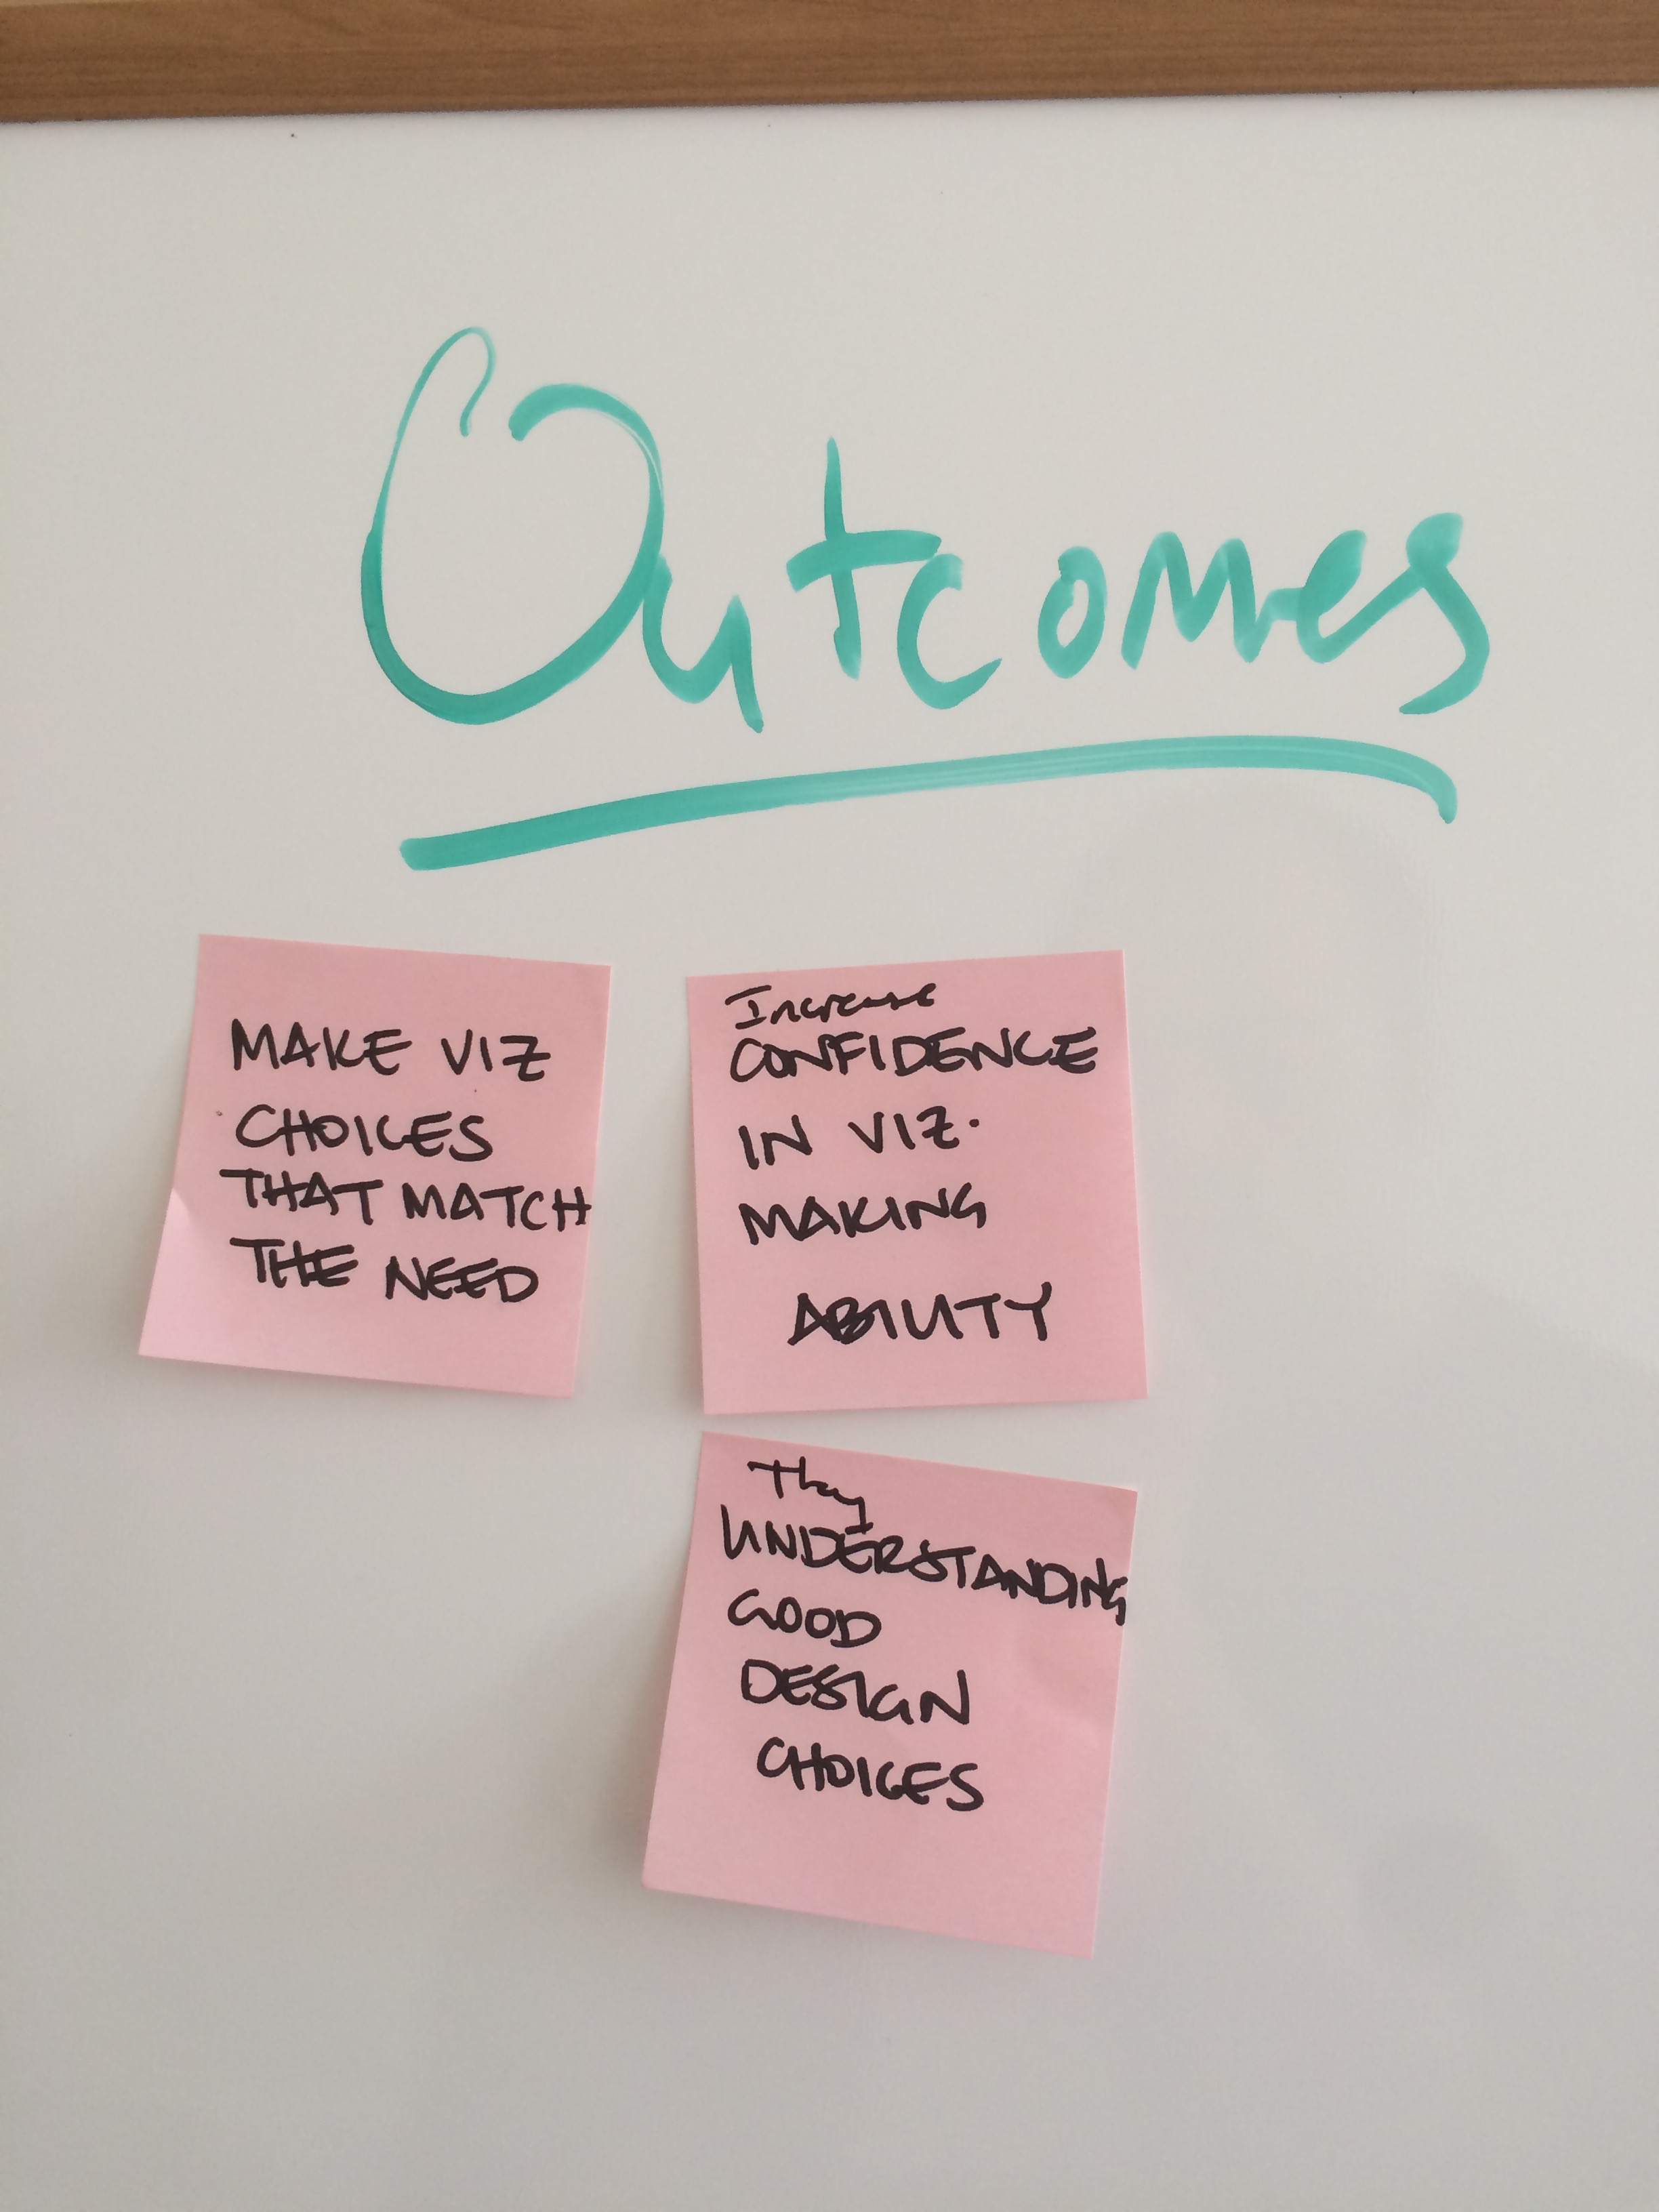 Outcomes
MAKE VIZ
CHOICES
THAT MATCH
THE NEED
Increase
CONFIDENCE
IN VIZ.
MAKING
ABILITY
They
UNDERSTANDING
GOOD
DESIGN
CHOICES